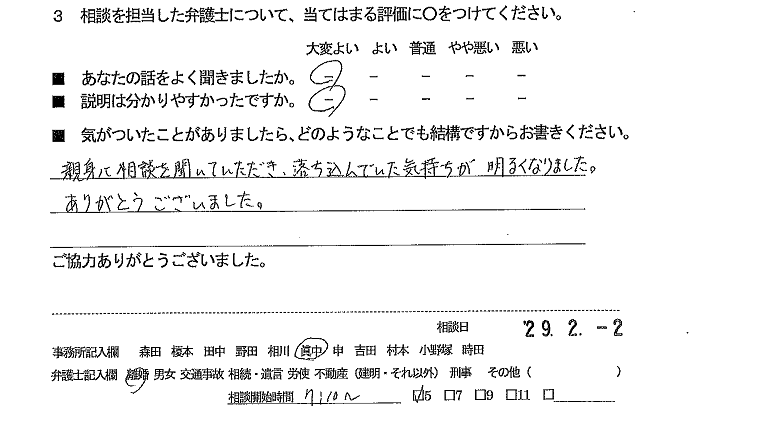 3 相談を担当した弁護士について、当てはまる評価に〇をつけてください。
大変よい よい 普通 やや悪い 悪い
■ あなたの話をよく聞きましたか。 － － － － －
■ 説明は分かりやすかったですか。 － － － － －
■ 気がついたことがありましたら、どのようなことでも結構ですからお書きください。
親身に相談を聞いていただき、落ち込んでいた気持ちが明るくなりました。
ありがとうございました。
ご協力ありがとうございました。
相談日 '29. 2. -2
事務所記入欄 森田 榎本 田中 野田 相川 眞中 申 吉田 村本 小野塚 時田
弁護士記入欄 離婚 男女 交通事故 相続・遺言 労使 不動産（建明・それ以外） 刑事 その他（ ）
相談開始時間 7:10～ ☑5 □7 □9 □11 □